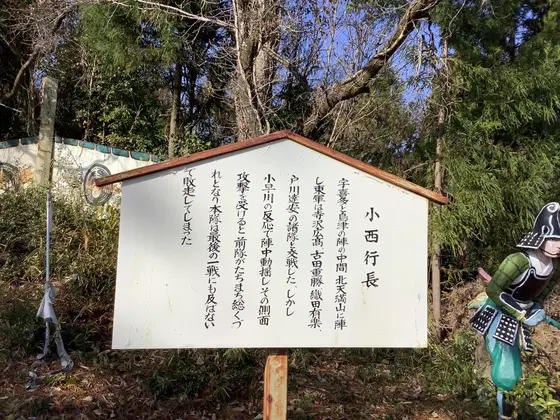 小西行長
宇喜多と島津の陣の中間、北天満山に陣
し東軍は寺沢広高、古田重勝、織田有楽、
戸川達安の諸隊と交戦した。しかし
小早川の反応で陣中動揺しその側面
攻撃を受けると、前隊がたちまち総くづ
れとなり本隊は最後の一戦にも及ばない
で敗走してしまった